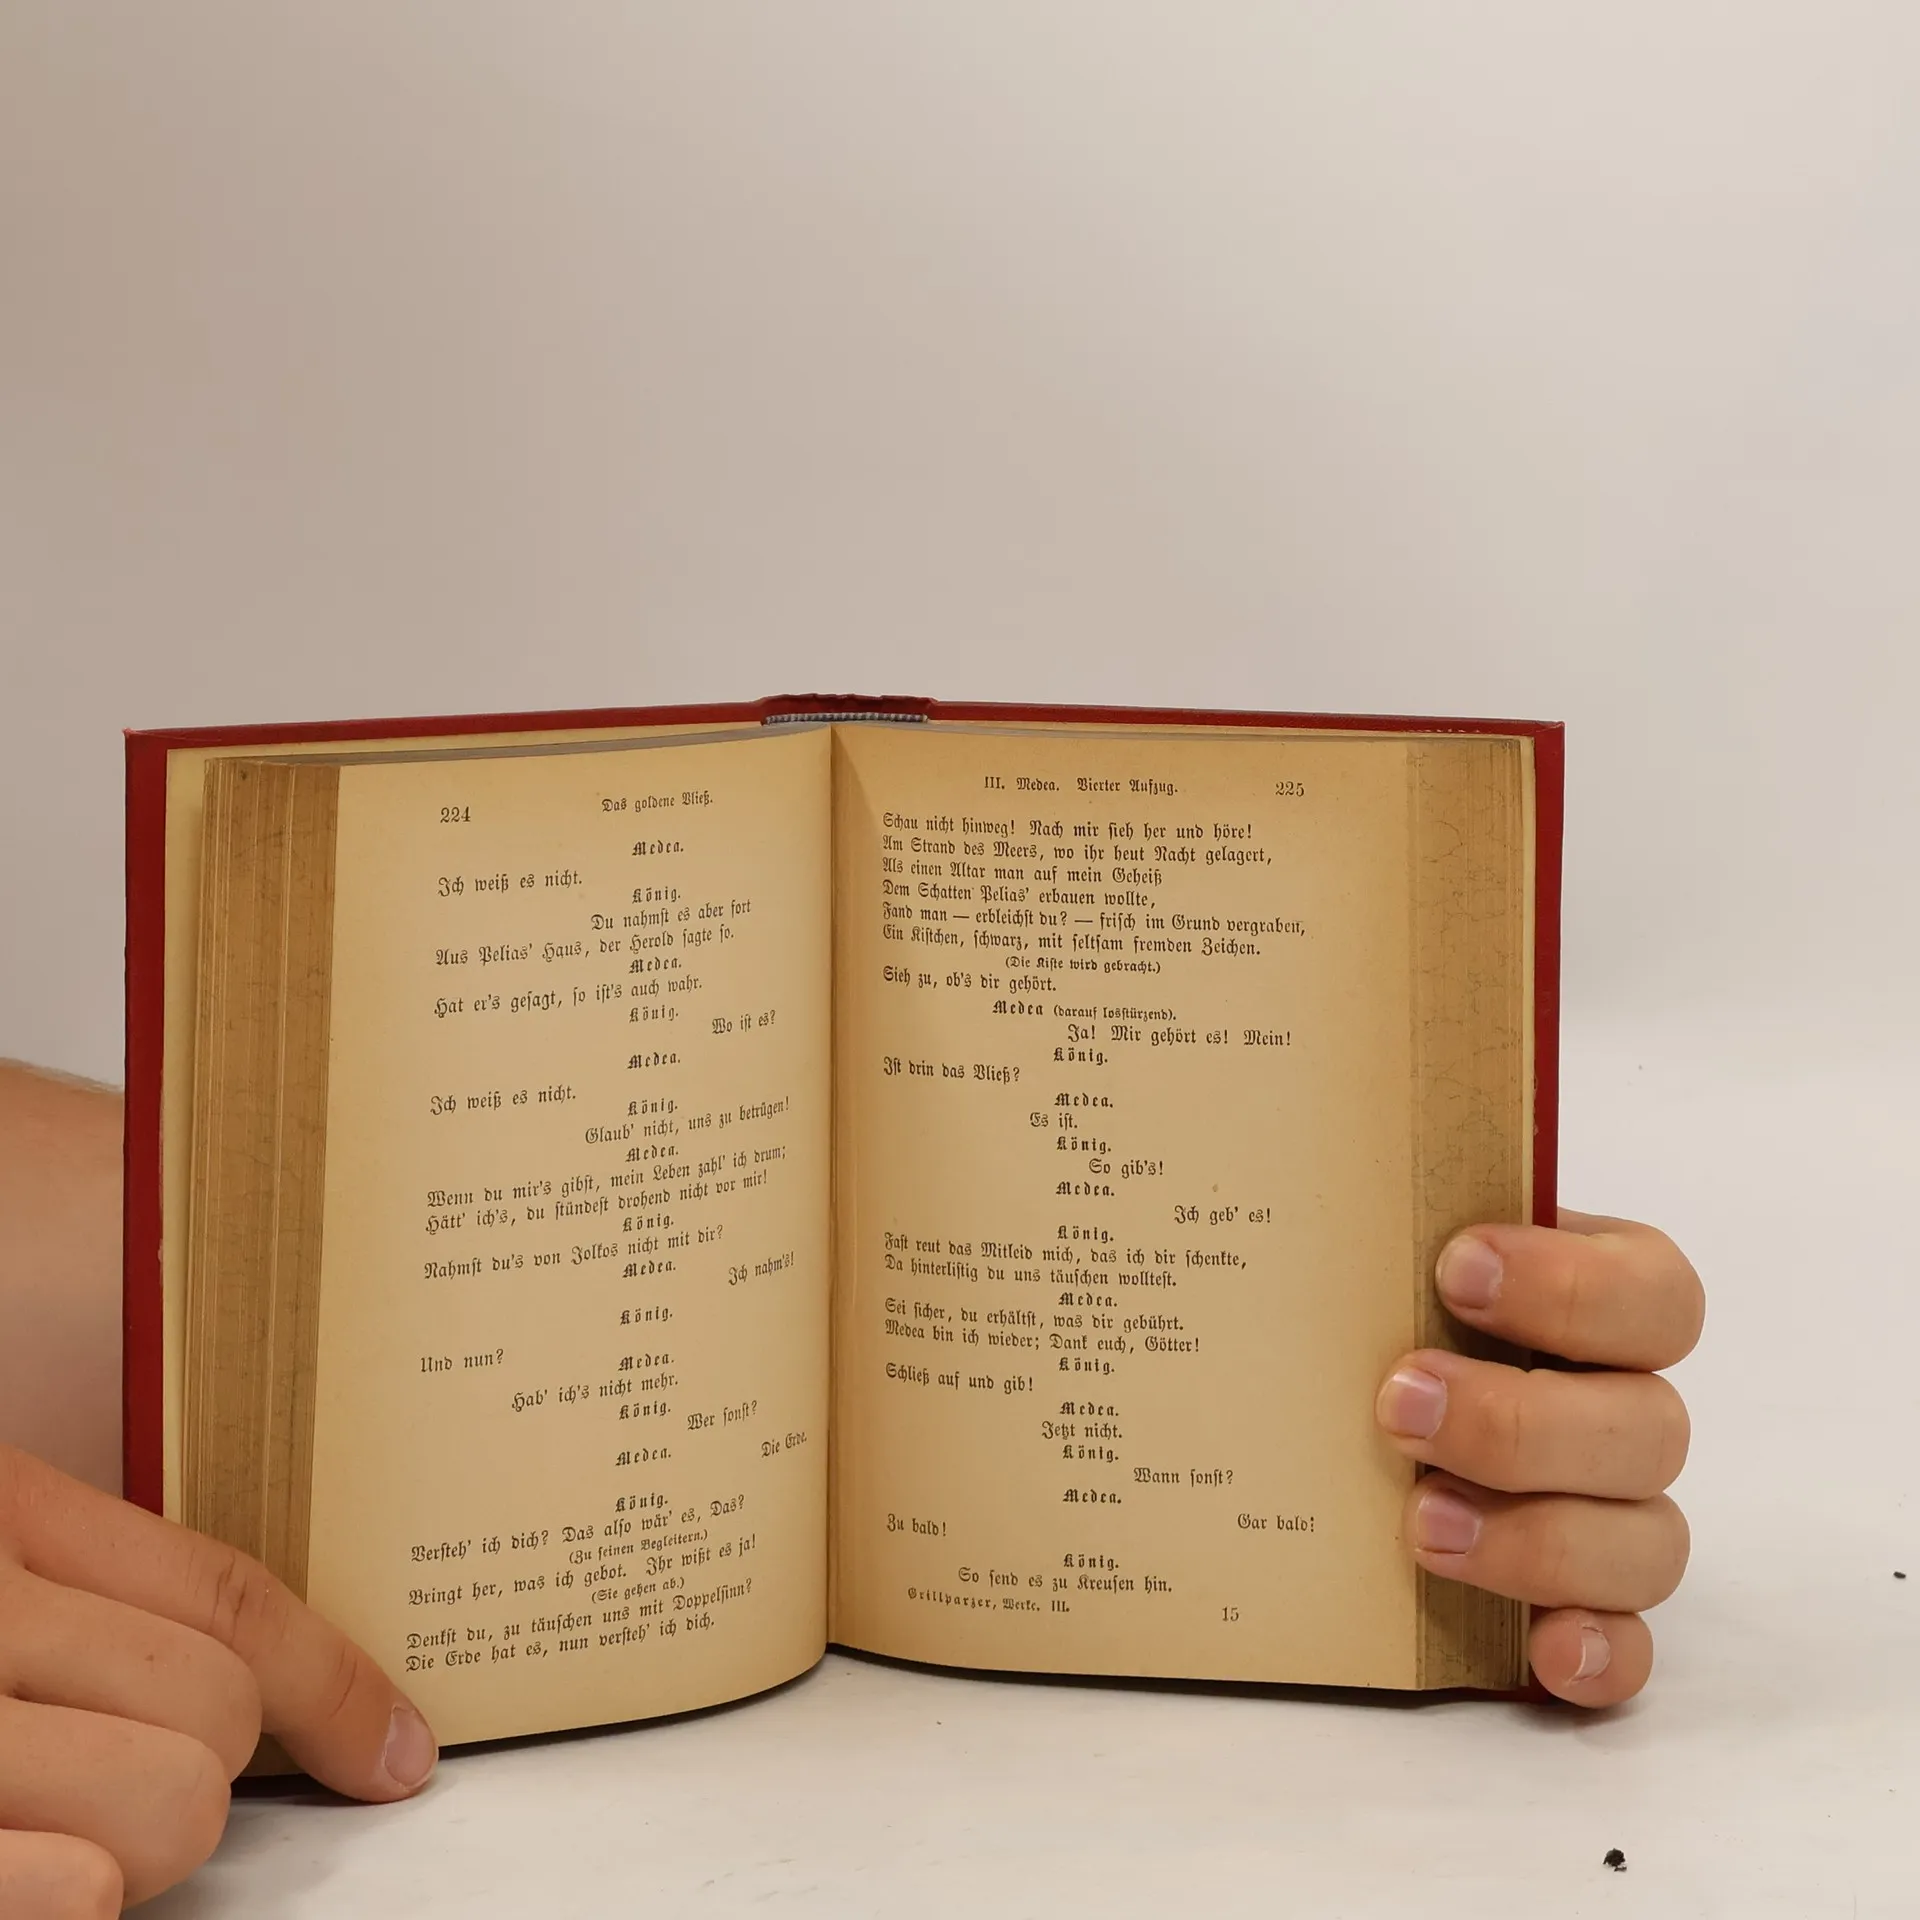 224
Das goldene Vließ.
Medea.
Ich weiß es nicht.
König.
Du nahmſt es aber fort
Aus Pelias' Haus, der Herold ſagte ſo.
Medea.
Hat er's geſagt, ſo iſt's auch wahr.
König.
Wo iſt es?
Medea.
Ich weiß es nicht.
König.
Glaub' nicht, uns zu betrügen!
Medea.
Wenn du mir's gibſt, mein Leben zahl' ich drum;
Hätt' ich's, du ſtündeſt drohend nicht vor mir!
König.
Nahmſt du's von Jolkos nicht mit dir?
Medea.
Ich nahm's!
König.
Und nun?
Medea.
Hab' ich's nicht mehr.
König.
Wer ſonſt?
Medea.
Die Erde.
König.
Verſteh' ich dich? Das alſo wär' es, Das?
(Zu ſeinen Begleitern.)
Bringt her, was ich gebot. Ihr wißt es ja!
(Sie gehen ab.)
Denkſt du, zu täuſchen uns mit Doppelſinn?
Die Erde hat es, nun verſteh' ich dich.
III. Medea. Vierter Aufzug.
225
Schau nicht hinweg! Nach mir ſieh her und höre!
Am Strand des Meers, wo ihr heut Nacht gelagert,
Als einen Altar man auf mein Geheiß
Dem Schatten Pelias' erbauen wollte,
Fand man — erbleichſt du? — friſch im Grund vergraben,
Ein Kiſtchen, ſchwarz, mit ſeltſam fremden Zeichen.
(Die Kiſte wird gebracht.)
Sieh zu, ob's dir gehört.
Medea (darauf losſtürzend).
Ja! Mir gehört es! Mein!
König.
Iſt drin das Vließ?
Medea.
Es iſt.
König.
So gib's!
Medea.
Ich geb' es!
König.
Faſt reut das Mitleid mich, das ich dir ſchenkte,
Da hinterliſtig du uns täuſchen wollteſt.
Medea.
Sei ſicher, du erhältſt, was dir gebührt.
Medea bin ich wieder; Dank euch, Götter!
König.
Schließ auf und gib!
Medea.
Jetzt nicht.
König.
Wann ſonſt?
Medea.
Gar bald!
Zu bald!
König.
So ſend es zu Kreuſen hin.
Grillparzer, Werke. III.
15